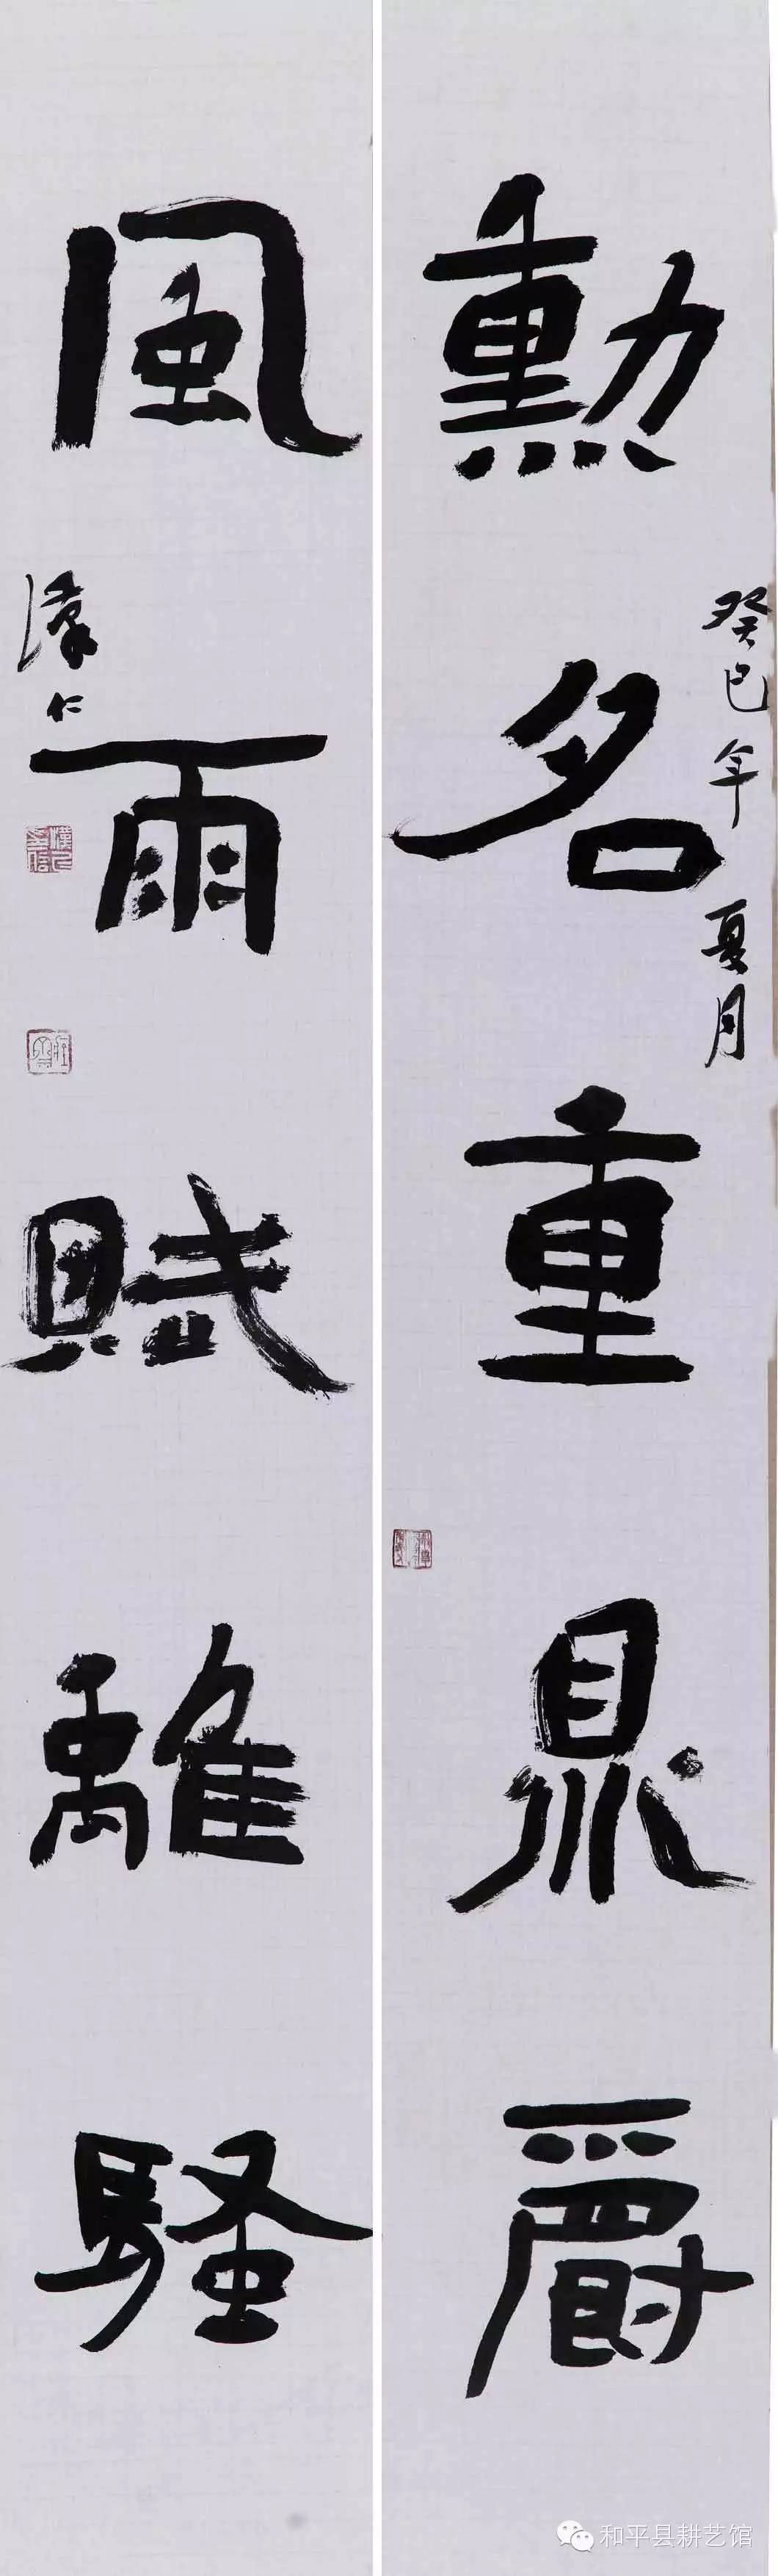 勲名重鼎爵
癸巳年夏月
風雨賦離騷
漢仁
和平县耕艺馆